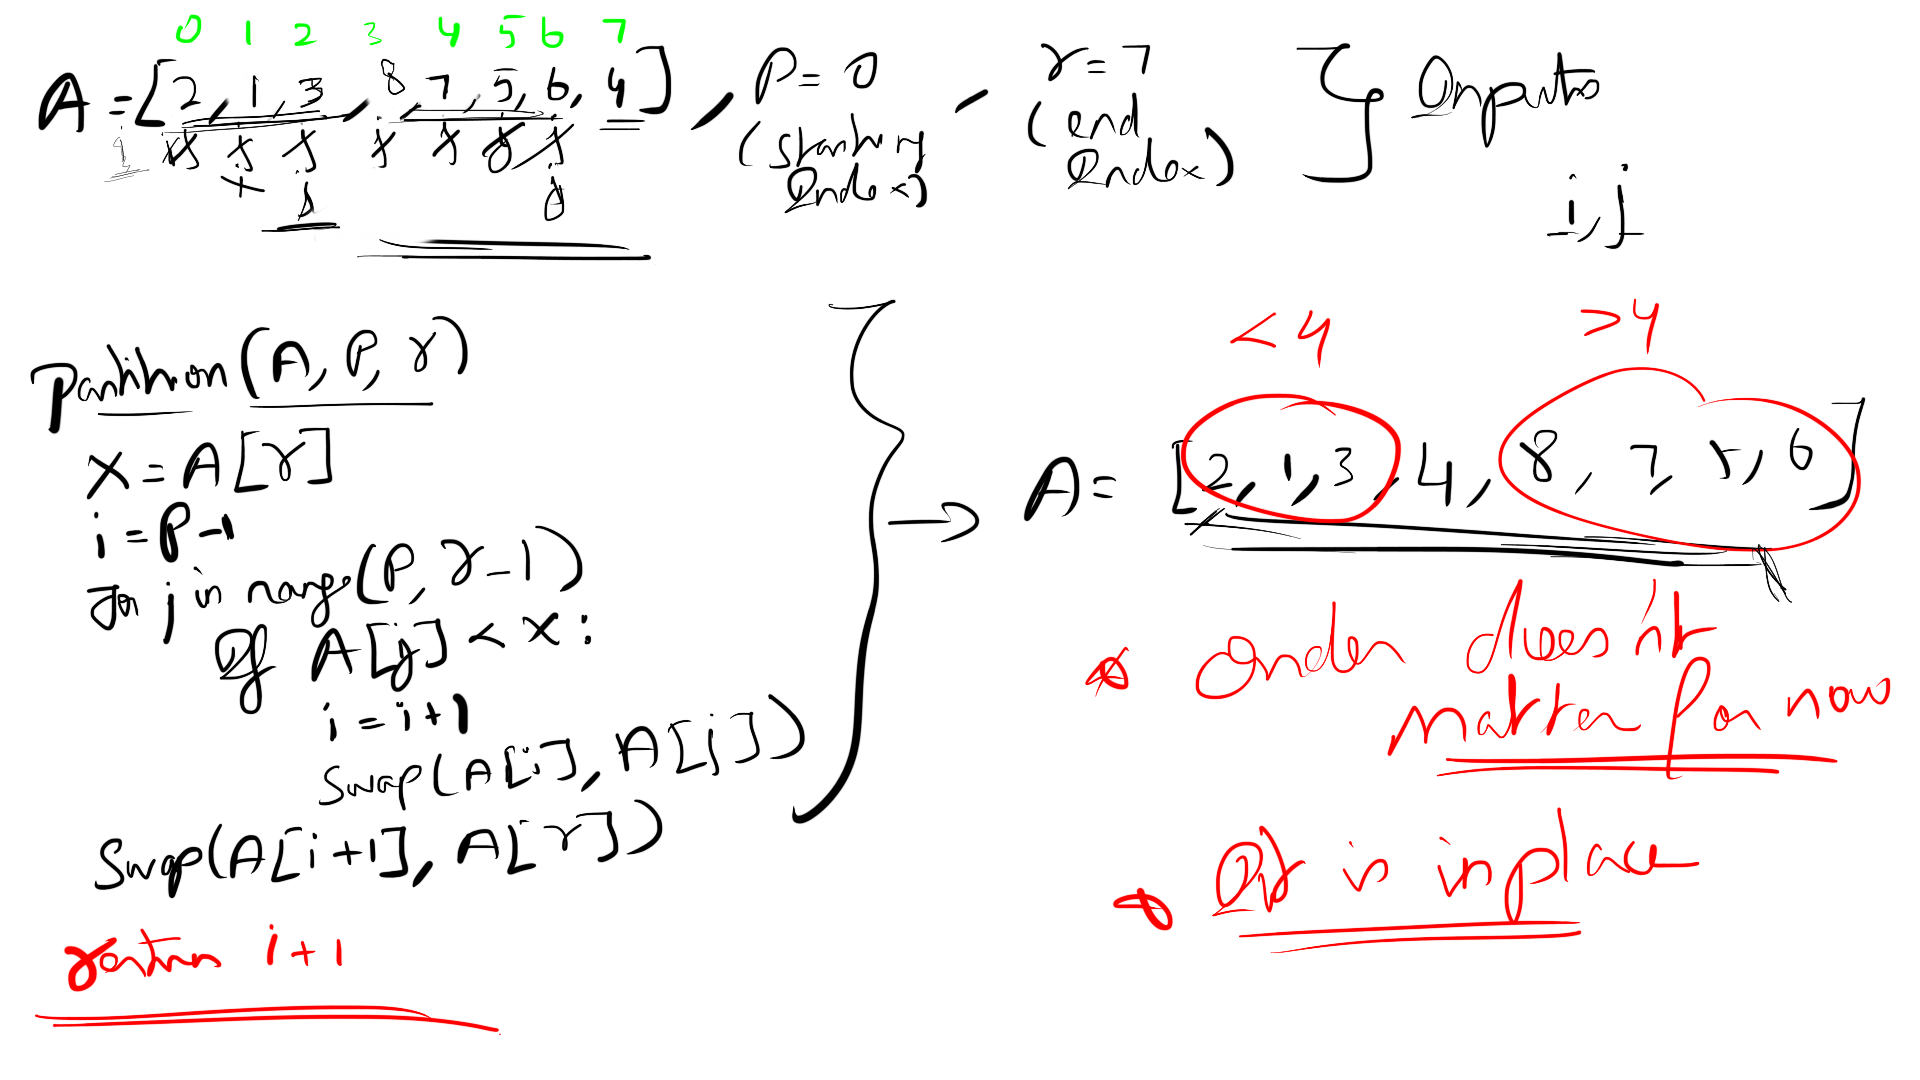 0 1 2 3 4 5 6 7
A = [2, 1, 3, 8, 7, 5, 6, 4], P = 0, r = 7 } Inputs
(starting Index) (end Index)
i, j
Partition(A, P, r)
x = A[r]
i = P-1
For j in range(P, r-1)
If A[j] < x:
i = i+1
Swap(A[i], A[j])
Swap(A[i+1], A[r])
return i+1
<4 >4
→ A = [2, 1, 3, 4, 8, 7, 5, 6]
* Order doesn't
matter for now
* It is inplace